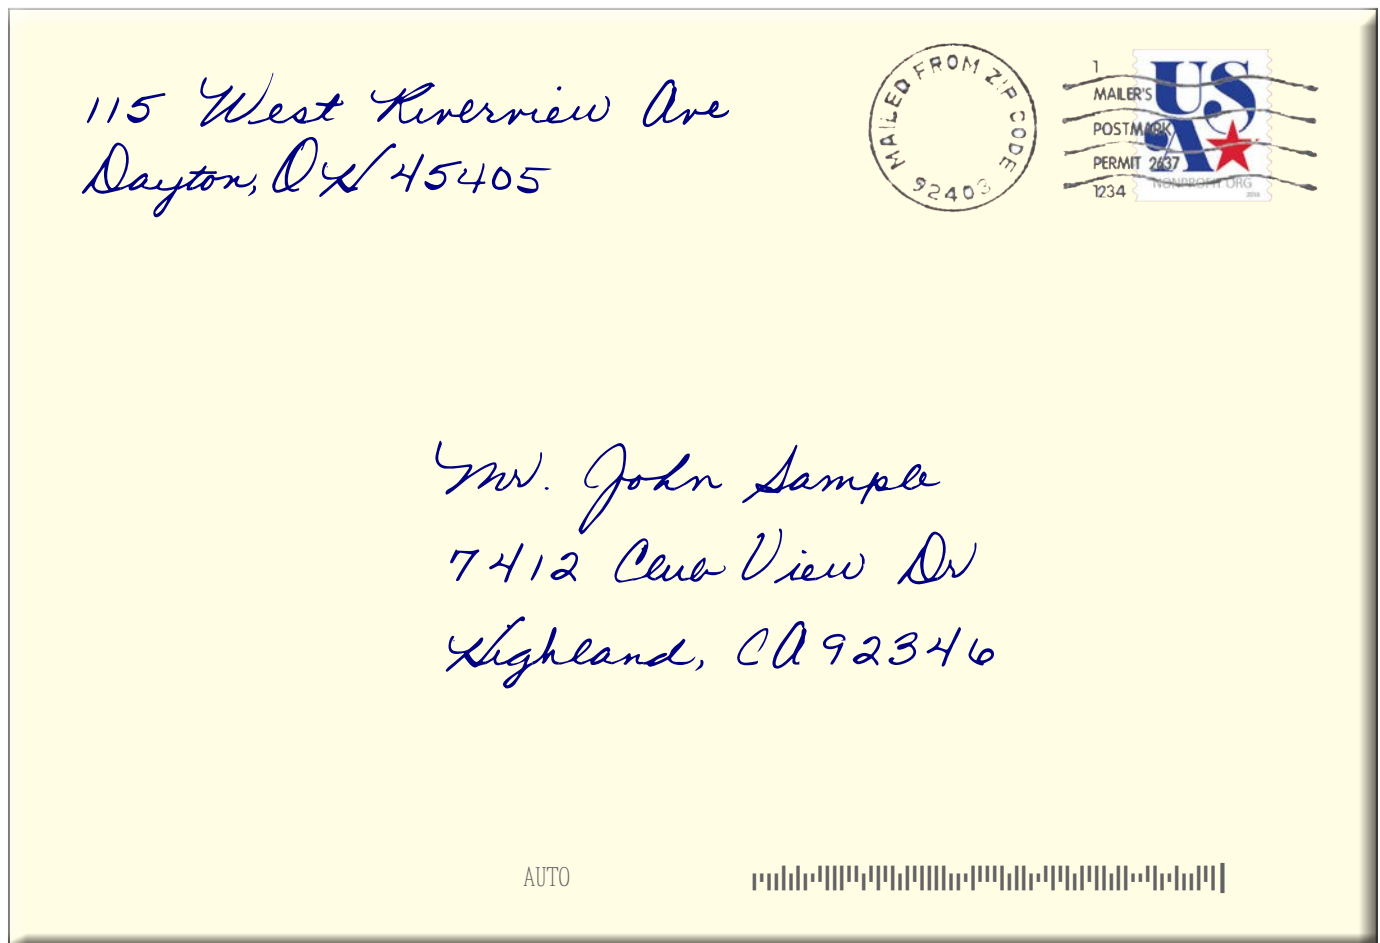 115 West Riverview Ave
Dayton, OH 45405
MAILED FROM ZIP CODE
92403
1
MAILER'S
POSTMARK
PERMIT 2637
1234
USA
NONPROFIT ORG
2016
Mr. John Sample
7412 Club View Dr
Highland, CA 92346
AUTO